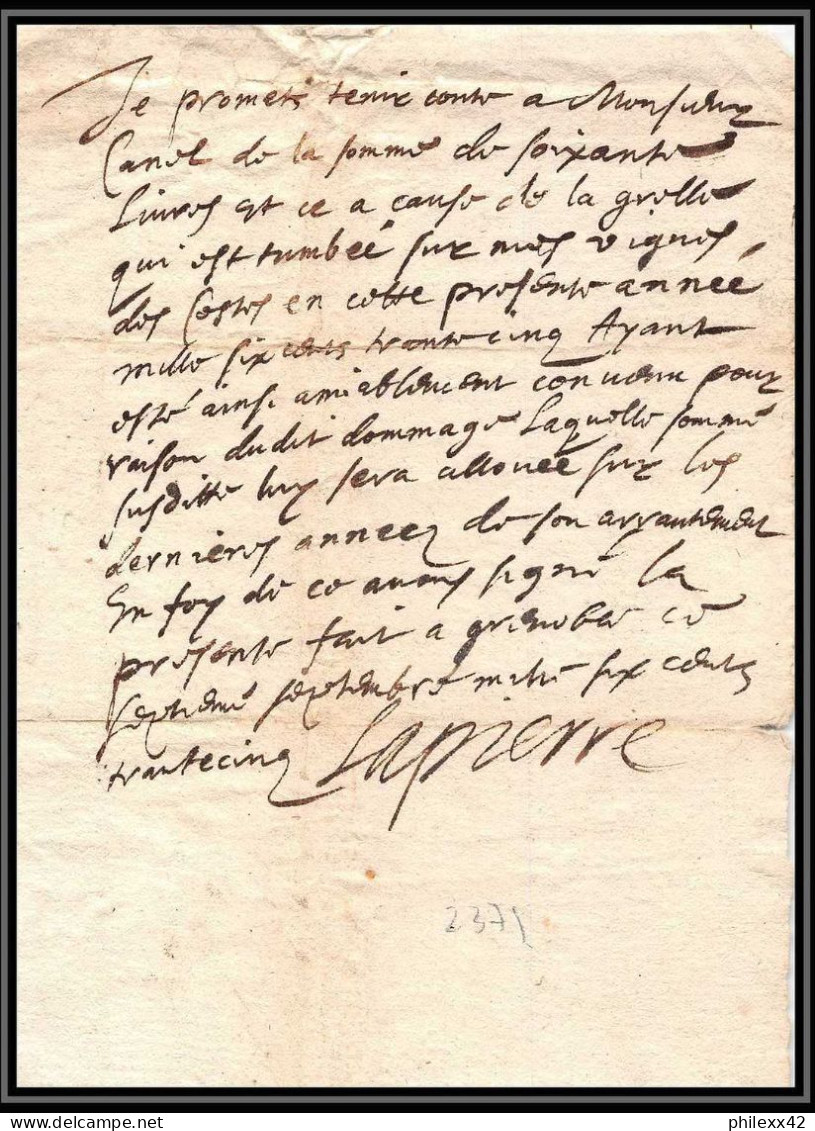 Je promets tenir conte a Monsieur
Canel de la somme de soixante
Livres et ce a cause de la grelle
qui est tumbée sur mes vignes
des Costes en cette presente année
mille six cents trante cinq Ayant
esté ainsi amiablement convenu pour
raison dudit dommage Laquelle somme
susditte luy sera allouée sur les
dernieres années de son arrantement
En foy de ce avons signé la
presente fait a grenoble ce
septieme septembre mille six cents
trantecinq Lapierre
2371
philexx42